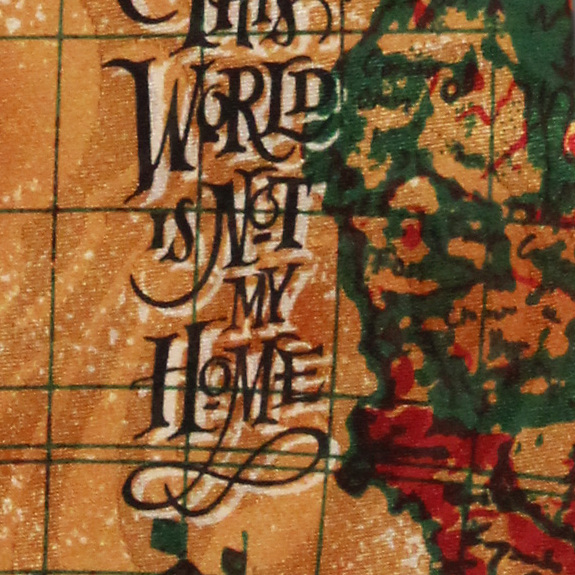 THIS
WORLD
IS NOT
MY
HOME